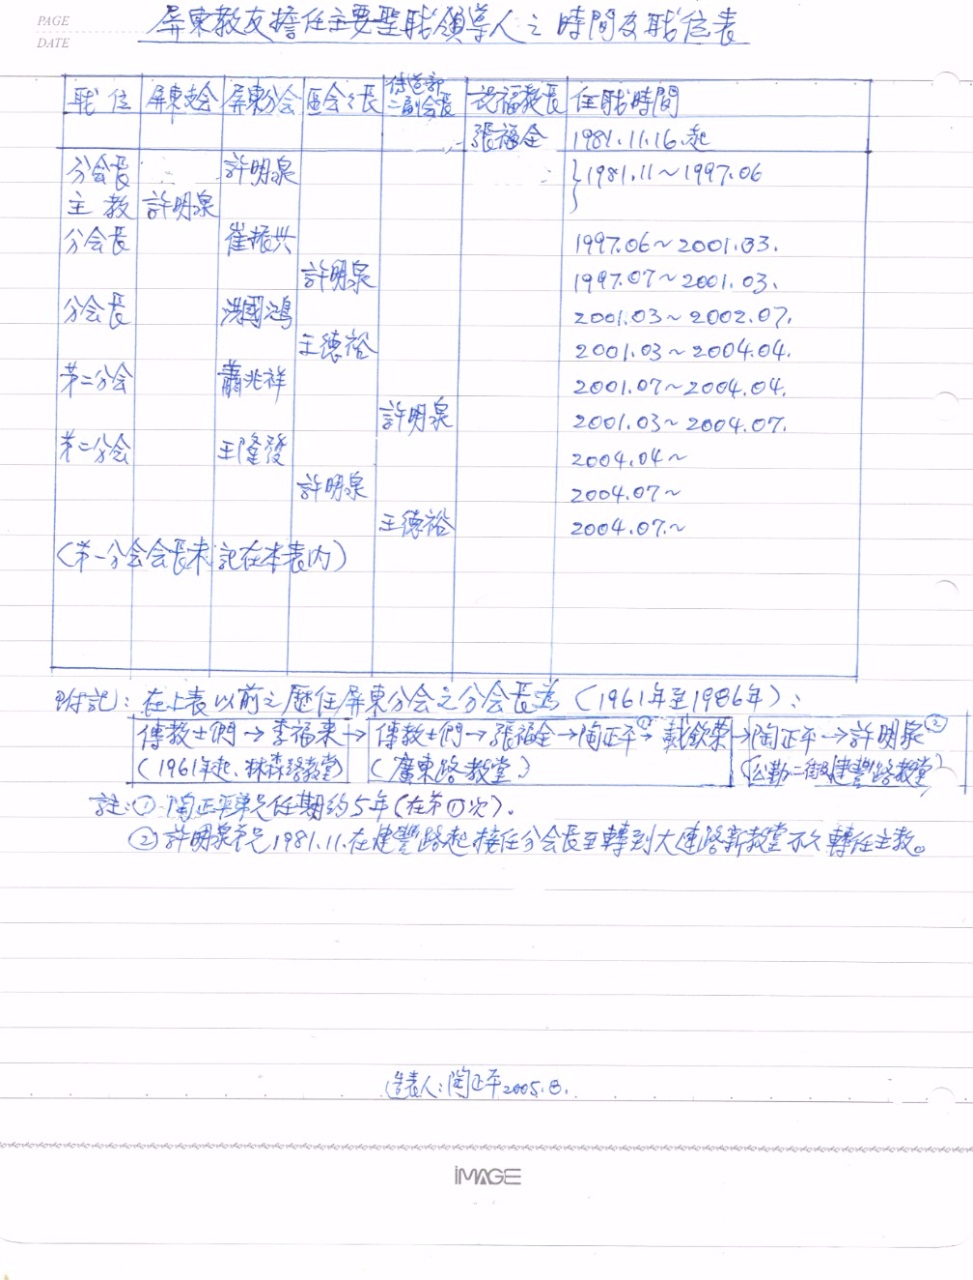 PAGE
DATE
屏東教友擔任主要聖職領導人之時間及職位表
職位 屏東支会 屏東分会 區会之長 傳道部二副会長 祝福教長 任職時間
張福全 1981.11.16.起
分会長 許明泉 1981.11~1997.06
主教 許明泉
分会長 崔振兴 1997.06~2001.03.
許明泉 1997.07~2001.03.
分会長 洪國鴻 2001.03~2002.07.
王德裕 2001.03~2004.04.
第二分会 蕭兆祥 2001.07~2004.04.
許明泉 2001.03~2004.07.
第二分会 王隆發 2004.04~
許明泉 2004.07~
王德裕 2004.07.~
(第一分会会長未記在本表内)
附記:在上表以前之歷任屏東分会之分会長為(1961年至1986年):
傳教士們→李福来→傳教士們→張福全→陶正平①→戴欽榮→陶正平→許明泉②
(1961年起、林森路教堂) (廣東路教堂) (公勤二街及建豐路教堂)
註:①陶正平弟兄任期約5年(在第①次)。
②許明泉弟兄1981.11.在建豐路起接任分会長至轉到大連路新教堂不久轉任主教。
造表人:陶正平2005.8.
iMAGE